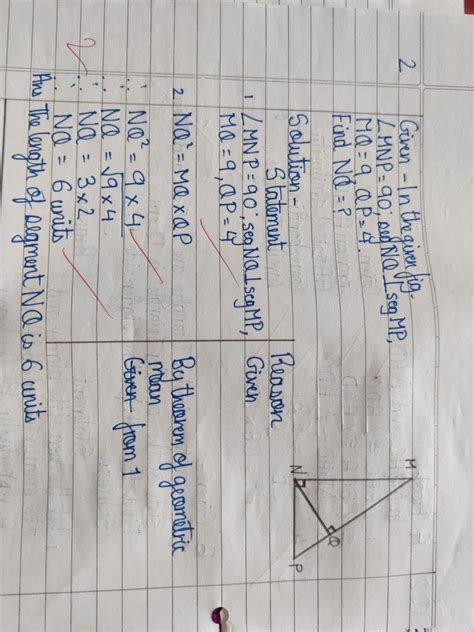 2
Given - In the given fig.
∠MNP = 90°, seg NQ ⊥ seg MP,
MQ = 9, QP = 4.
Find NQ = ?
M
N
Q
P
Solution -
Statement
Reason
1 ∠MNP = 90°, seg NQ ⊥ seg MP, Given
MQ = 9, QP = 4
2 NQ² = MQ × QP By theorem of geometric
mean
∴ NQ² = 9 × 4 Given from 1
∴ NQ = √9 × 4
∴ NQ = 3 × 2
∴ NQ = 6 units
2
Ans The length of segment NQ is 6 units